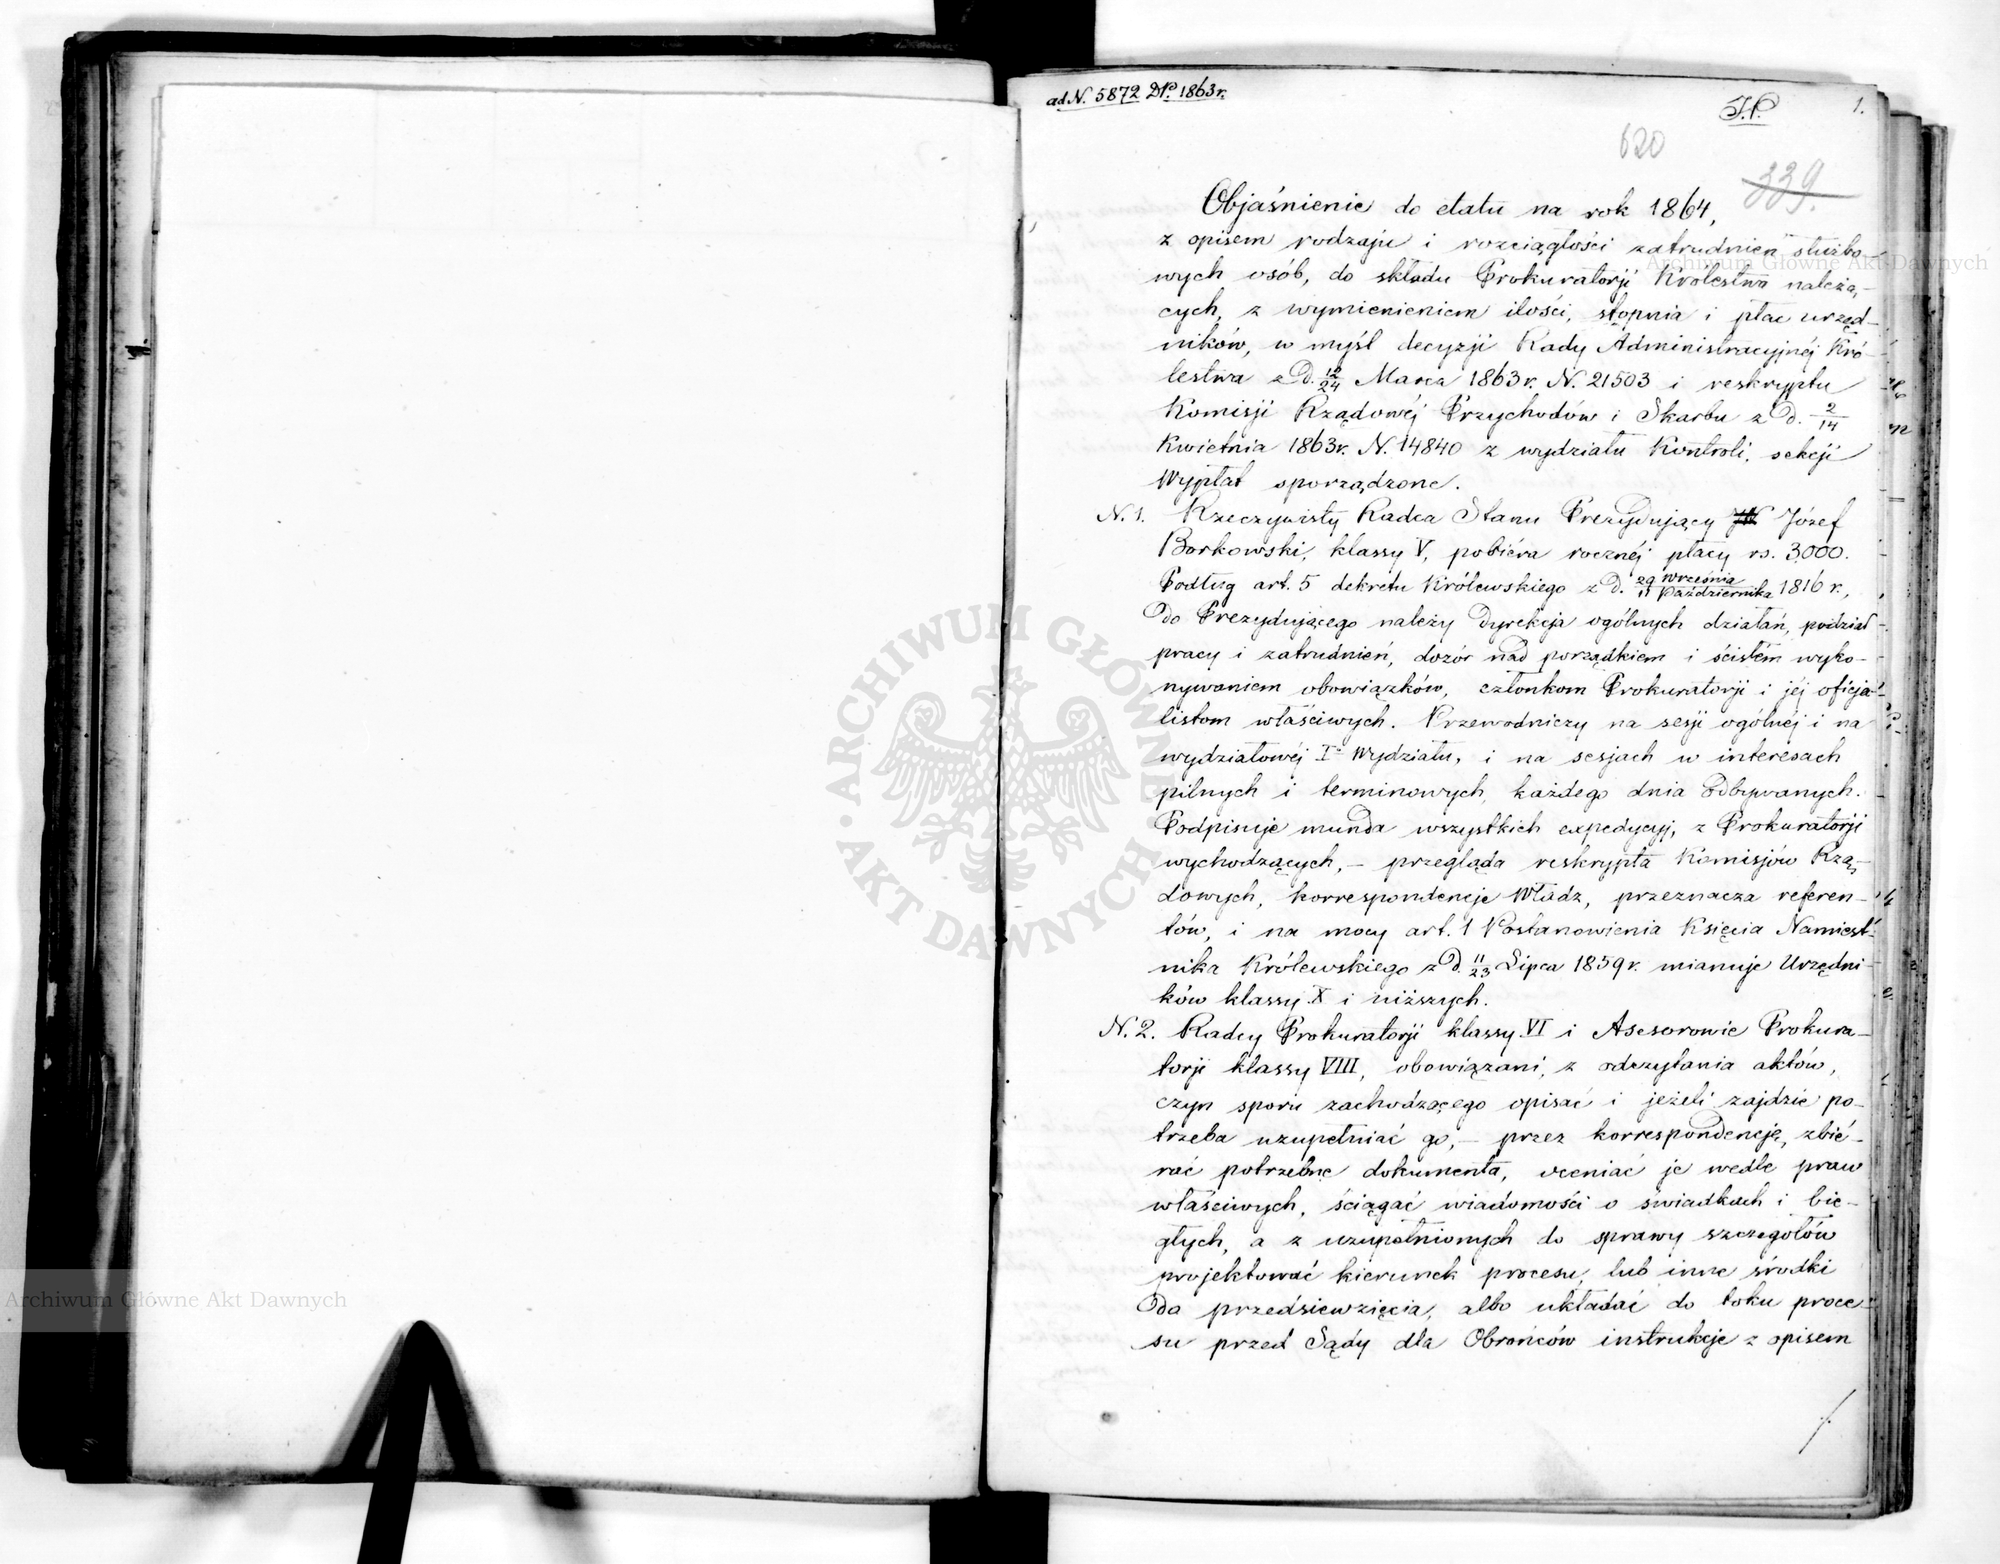 ad N. 5872 DP. 1863 r.
J.P.
1.
620
339.
Objaśnienie do etatu na rok 1864,
z opisem rodzaju i rozciągłości zatrudnień służbo-
wych osób, do składu Prokuratorji Królestwa należą-
cych, z wymienieniem ilości, stopnia i płac urzęd-
ników, w myśl decyzji Rady Administracyjnéj Kró-
lestwa z D. 12/24 Marca 1863 r. N. 21503 i reskryptu
Komisji Rządowéj Przychodów i Skarbu z D. 2/14
Kwietnia 1863 r. N. 14840 z wydziału Kontroli, sekcji
Wypłat sporządzone.
N. 1. Rzeczywisty Radca Stanu Prezydujący Józef
Borkowski, klassy V, pobiéra rocznéj płacy rs. 3,000.
Podług art. 5 dekretu Królewskiego z D. 29 Września/11 Października 1816 r.,
Do Prezydującego należy Dyrekcja ogólnych działań, podział
pracy i zatrudnień, dozór nad porządkiem i ścisłém wyko-
nywaniem obowiązków, członkom Prokuratorji i jéj oficja-
listom właściwych. Przewodniczy na sesji ogólnéj i na
wydziałowéj Iº Wydziału, i na sesjach w interesach
pilnych i terminowych, każdego dnia odbywanych.
Podpisuje munda wszystkich expedycyj, z Prokuratorji
wychodzących, – przegląda reskrypta Komisjów Rzą-
dowych, korrespondencje Władz, przeznacza referen-
tów, i na mocy art. 1 Postanowienia Księcia Namiest-
nika Królewskiego z D. 11/23 Lipca 1859 r. mianuje Urzędni-
ków klassy X i niższych.
N. 2. Radcy Prokuratorji klassy VI i Asesorowie Prokura-
torji klassy VIII, obowiązani, z odczytania aktów,
czyn sporu zachodzącego opisać i jeżeli zajdzie po-
trzeba uzupełniać go, – przez korrespondencję, zbié-
rać potrzebne dokumenta, oceniać je wedle praw
właściwych, ściągać wiadomości o świadkach i bie-
głych, a z uzupełnionych do sprawy szczegółów
projektować kierunek procesu, lub inne środki
Do przedsiewzięcia, albo układać do toku proce-
su przed Sądy dla Obrońców instrukcje z opisem
./.
ARCHIWUM GŁÓWNE AKT DAWNYCH
Archiwum Główne Akt Dawnych
Archiwum Główne Akt Dawnych